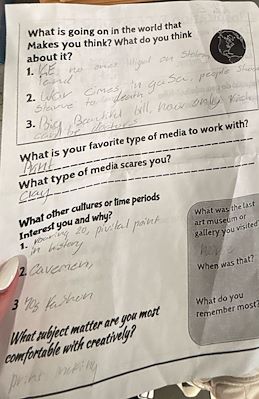 What is going on in the world that
Makes you think? What do you think
about it?
1. ICE, no ones illegal on stolen
land
2. War Cimes, in gaza, people
starve to death
3. Big Beautiful bill, now only rich
can be doctors
What is your favorite type of media to work with?
Paint
What type of media scares you?
Clay
What other cultures or time periods
Interest you and why?
1. roaring 20, pivital point
in history
2. Cavemen,
3 70s Fashion
What subject matter are you most
comfortable with creatively?
print making
What was the last
art museum or
gallery you visited?
When was that?
What do you
remember most?